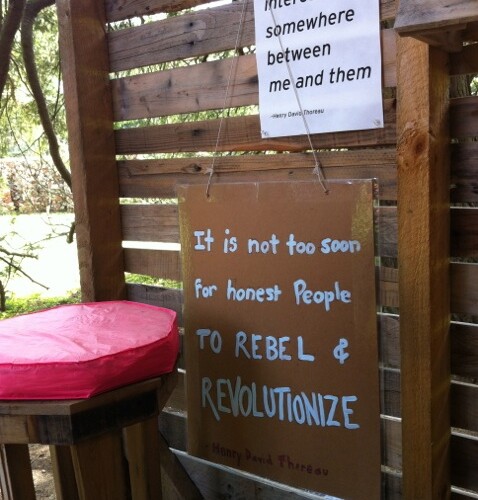 somewhere
between
me and them
-Henry David Thoreau
It is not too soon
For honest People
TO REBEL &
REVOLUTIONIZE
- Henry David Thoreau